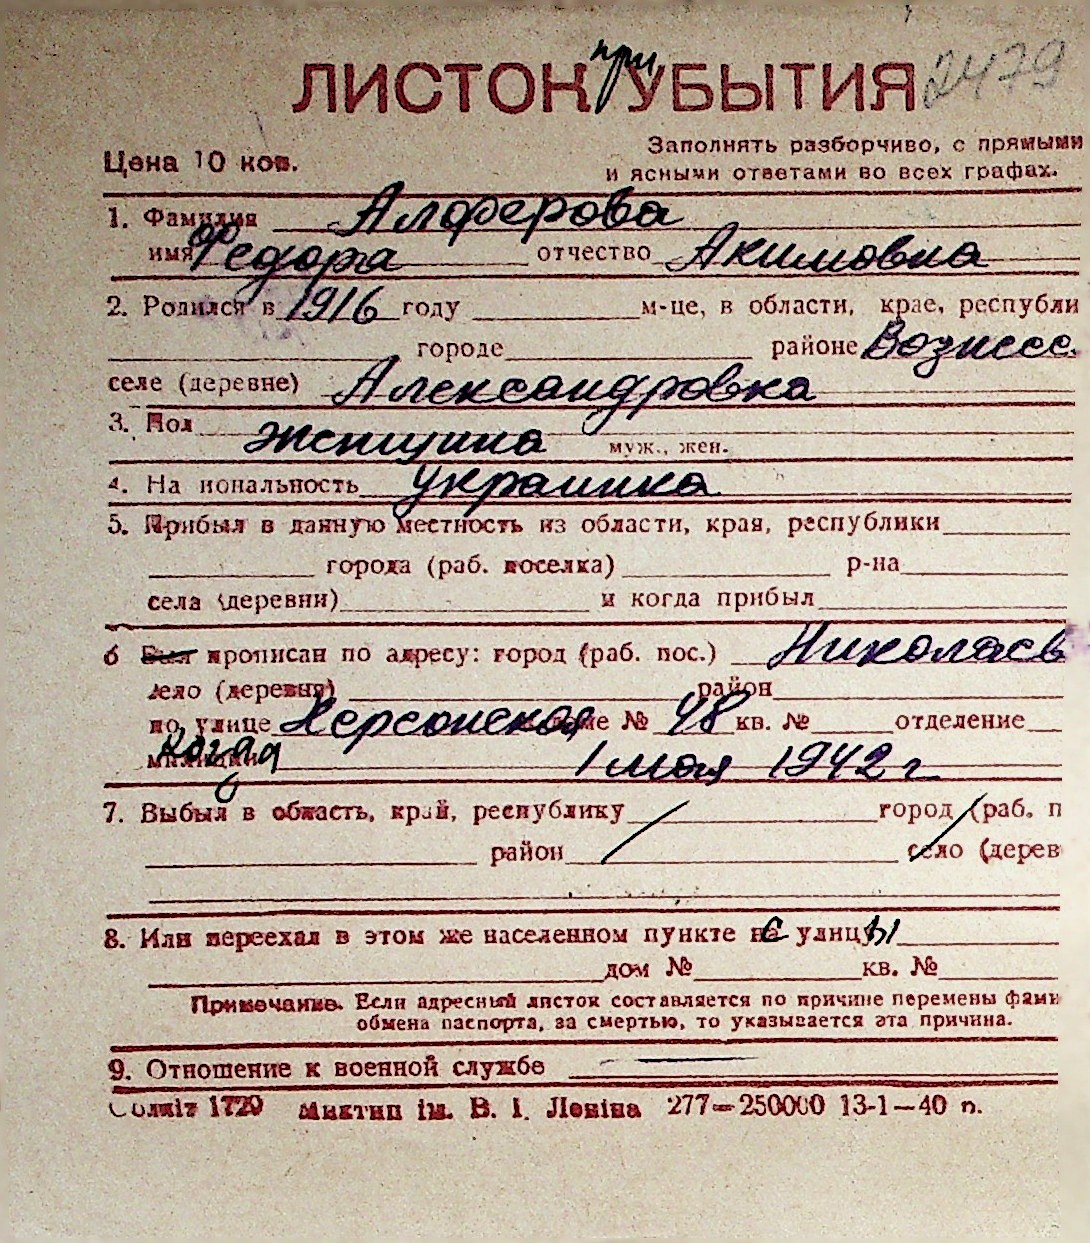 при
ЛИСТОК УБЫТИЯ 2479
Цена 10 коп.
Заполнять разборчиво, с прямыми
и ясными ответами во всех графах.
1. Фамилия Алферова
имя Федора отчество Акимовна
2. Родился в 1916 году м-це, в области, крае, республи
городе районе Вознесс.
селе (деревне) Александровка
3. Пол женщина муж., жен.
4. На иональность украинка
5. Прибыл в данную местность из области, края, республики
города (раб. поселка) р-на
села (деревни) и когда прибыл
6 Был прописан по адресу: город (раб. пос.) Николаев
село (деревня) район
по улице Херсонская доме № 48 кв. № отделение
милиции когда 1 мая 1942 г
7. Выбыл в область, край, республику город (раб. п
район село (дерев
8. Или переехал в этом же населенном пункте с улицы
дом № кв. №
Примечание. Если адресный листок составляется по причине перемены фами
обмена паспорта, за смертью, то указывается эта причина.
9. Отношение к военной службе
Облліт 1720 Миктип ім. В. І. Леніна 277—250000 13-1—40 п.